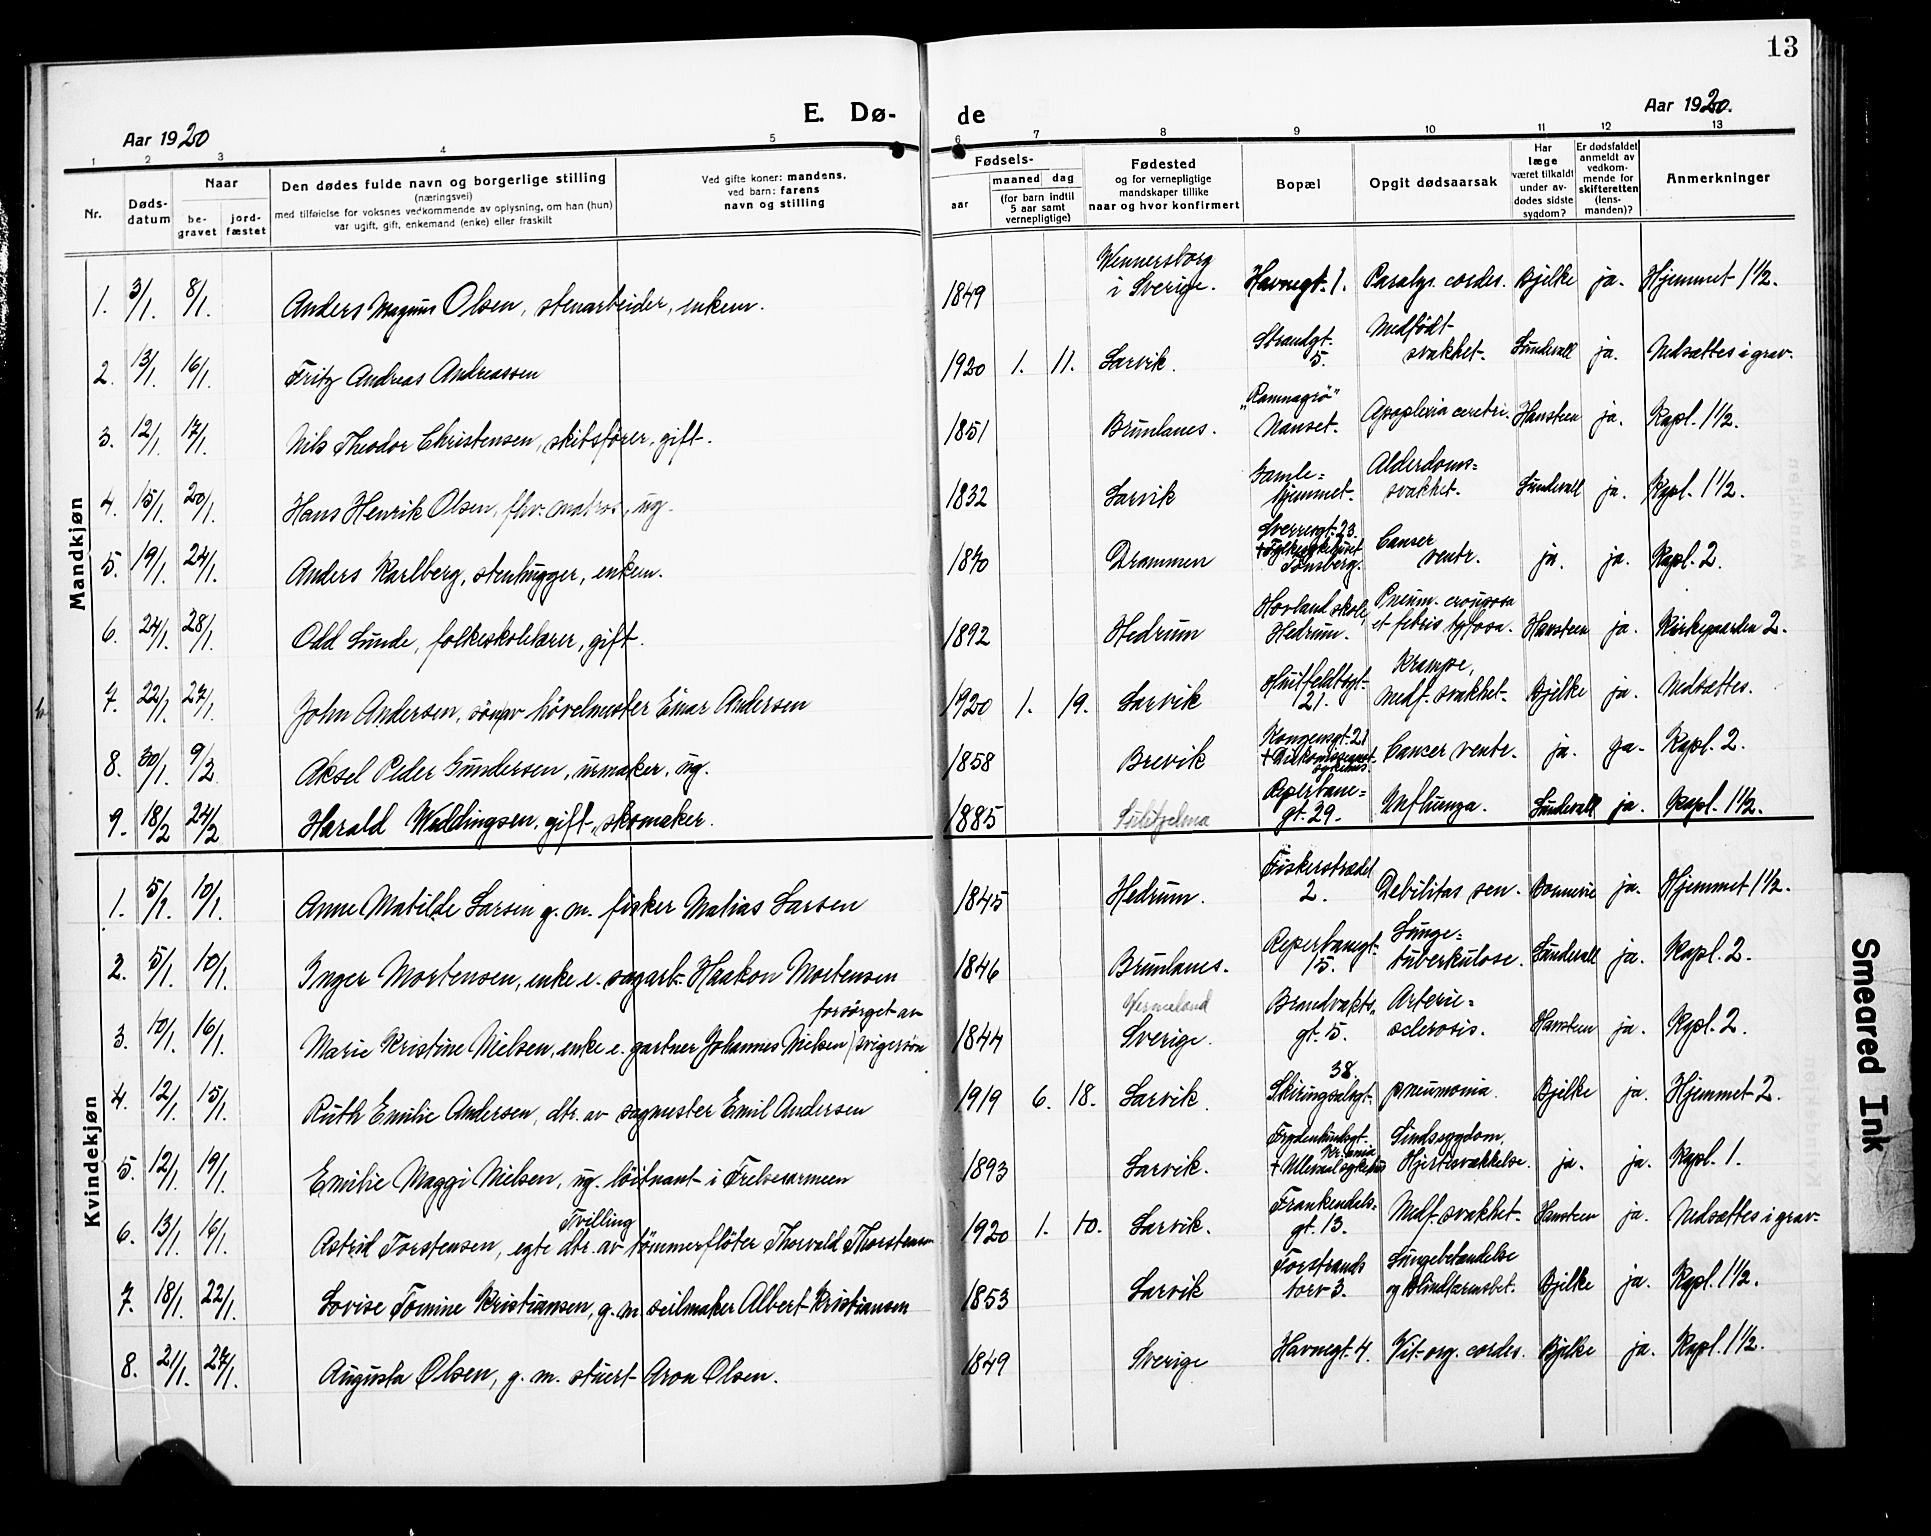 13
E. Dø- de
Aar 1920
Aar 1920.
1 2 3 4 5 6 7 8 9 10 11 12 13
Nr.
Døds-
datum
Naar
be-
gravet
jord-
fæstet
Den dødes fulde navn og borgerlige stilling
(næringsvei)
med tilføielse for voksnes vedkommende av oplysning, om han (hun)
var ugift, gift, enkemand (enke) eller fraskilt
Ved gifte koner: mandens,
ved barn: farens
navn og stilling
Fødsels-
aar
maaned
dag
(for barn indtil
5 aar samt
vernepligtige)
Fødested
og for vernepligtige
mandskaper tillike
naar og hvor konfirmert
Bopæl
Opgit dødsaarsak
Har
læge
været tilkaldt
under av-
dødes sidste
sygdom?
Er dødsfaldet
anmeldt av
vedkom-
mende for
skifteretten
(lens-
manden)?
Anmerkninger
Mandkjøn
1. 3/1. 8/1. Anders Magnus Olsen, stenarbeider, enkem. 1849 Wennersborg i Sverige. Havnegt. 1. Paralys. cordes. Bjelke ja. Hjemmet 1 1/2.
2. 13/1. 16/1. Fritz Andreas Andreassen 1920 1. 11. Larvik. Strandgt. 5. Medfödt svakhet. Sundevall ja. Nedsættes i grav.
3. 12/1. 17/1. Nils Theodor Christensen, skibsförer, gift. 1851 Brunlanes. Nanset. Apoplexia cerebri. Hansteen ja. Kapl. 1 1/2.
4. 15/1. 20/1. Hans Henrik Olsen, fhv. matros, ug. 1832 Larvik Gamle= hjemmet. Alderdoms= svakhet. Sundevall ja. Kapl. 1 1/2.
5. 19/1. 24/1. Anders Karlberg, stenhugger, enkem. Drammen Sverresgt. 23. Tönsberg. Cancer ventr. ja. ja. Kapl. 2.
6. 24/1. 28/1. Odd Lunde, folkeskolelærer, gift. 1892 Hedrum Hovland skole, Hedrum. Pneum. crouposa et febris tyfosa. Hansteen ja. Kirkegaarden 2.
7. 22/1. 27/1. John Andersen, sön av hövelmester Einar Andersen 1920 1. 19. Larvik Huitfeldtsgt. 21. Krampe, medf. svakhet. Bjelke ja. Nedsættes.
8. 30/1. 9/2. Aksel Peder Gundersen, urmaker, ug. 1858 Brevik Kongensgt. 21 Cancer ventr. ja. ja. Kapl. 2.
9. 18/2 24/2 Harald Weddingsen, gift, skomaker. 1885 Sulitjelma Reperbane= gt. 29. Influenza. Sundevall ja. Kapl. 1 1/2.
Kvindekjøn
1. 5/1. 10/1. Anne Matilde Larsen g. m. fisker Matias Larsen 1845 Hedrum. Fiskerstrædet 2. Debilitas sen. Bonnevie ja. Hjemmet 1 1/2.
2. 5/1. 10/1. Inger Mortensen, enke e. sagarb. Haakon Mortensen 1846 Brunlanes. Reperbanegt. 15. Lunge= tuberkulose. Sundevall ja. Kapl. 2.
3. 10/1. 16/1. Marie Kristine Nielsen, enke e. gartner Johannes Nielsen forsörget av svigersön 1844 Vermeland Sverige. Brandvakts= gt. 5. Arterie= sclerosis. Hansteen ja. Kapl. 2.
4. 12/1. 15/1. Ruth Emilie Andersen, dtr. av sagmester Emil Andersen 1919 6. 18. Larvik. Skiringsalsgt. 38. pneumonia. Bjelke ja. Hjemmet 2.
5. 12/1. 19/1. Emilie Maggi Nielsen, ug. löitnant i Frelsesarmeen 1893 Larvik. Frydenlundsgt. Kr.ania + Ullevaal sykehus Sindssygdom, Hjertesvækkelse. ja. ja. Kapl. 1.
6. 13/1. 16/1. Astrid Torstensen, Tvilling egte dtr. av tömmerflöter Thorvald Thorstensen 1920 1. 10. Larvik. Frankendals= gt. 13. Medf. svakhet. Hansteen ja. Nedsættes i grav.
7. 18/1. 22/1. Lovise Tomine Kristiansen, g. m. seilmaker Albert Kristiansen 1853 Larvik Torstrands torv 3. Lungebetændelse og blindtarmsbet. Bjelke ja. Kapl. 1 1/2.
8. 21/1. 27/1. Augusta Olsen, g. m. stuert Aron Olsen. 1849 Sverige Havnegt. 4. Vit. org. cordes. Bjelke ja. Kapl. 1 1/2.
Smeared Ink